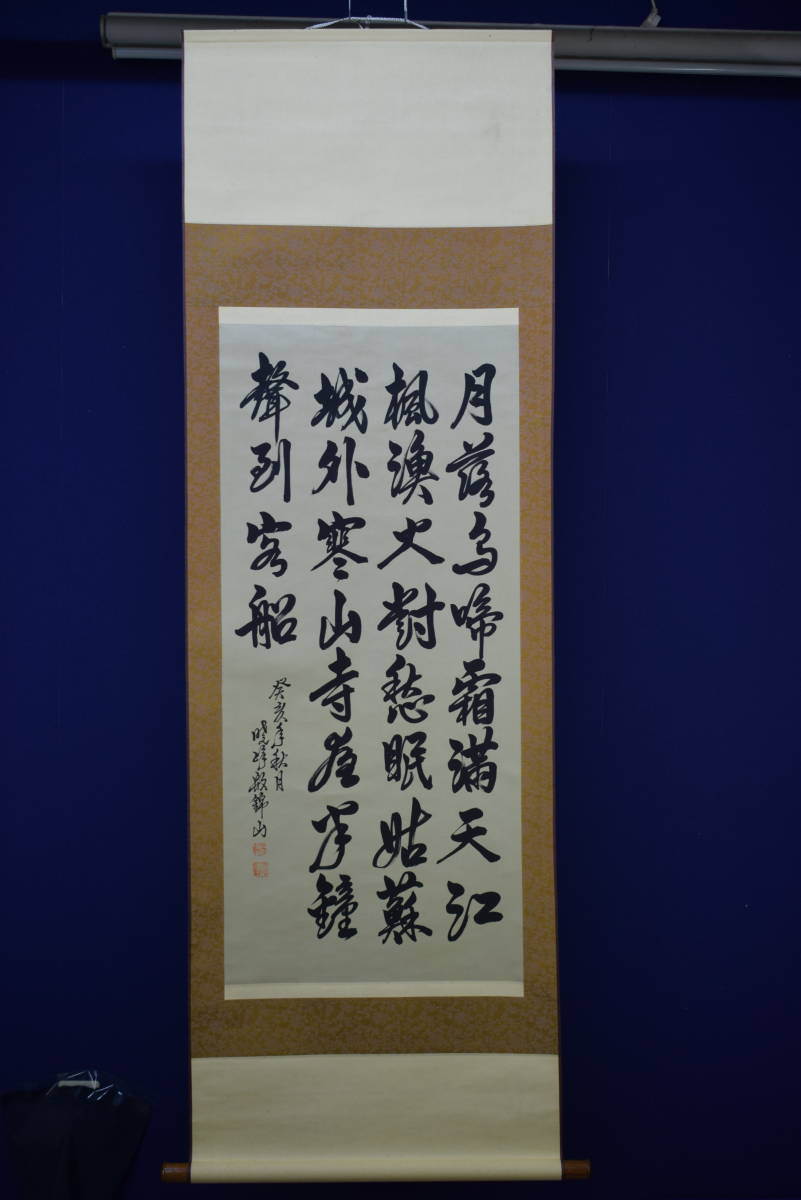 月落烏啼霜滿天江
楓漁火對愁眠姑蘇
城外寒山寺夜半鐘
聲到客船
癸亥年秋月
曉峰段錦山